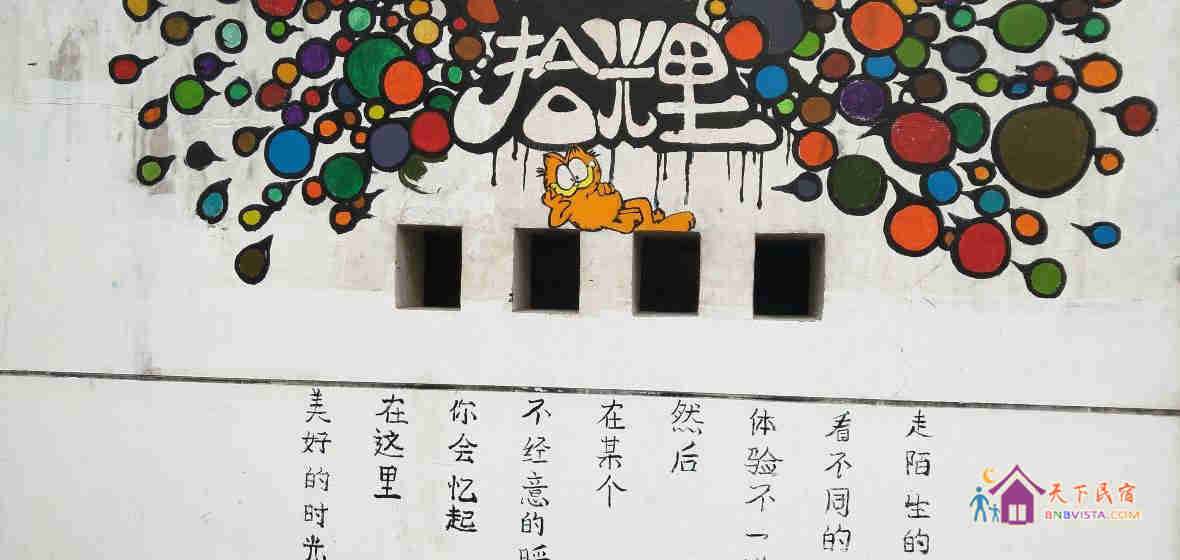 拾光里
走陌生的
看不同的
体验不一
然后
在某个
不经意的
你会忆起
在这里
美好的时光
天下民宿
BNBVISTA.COM